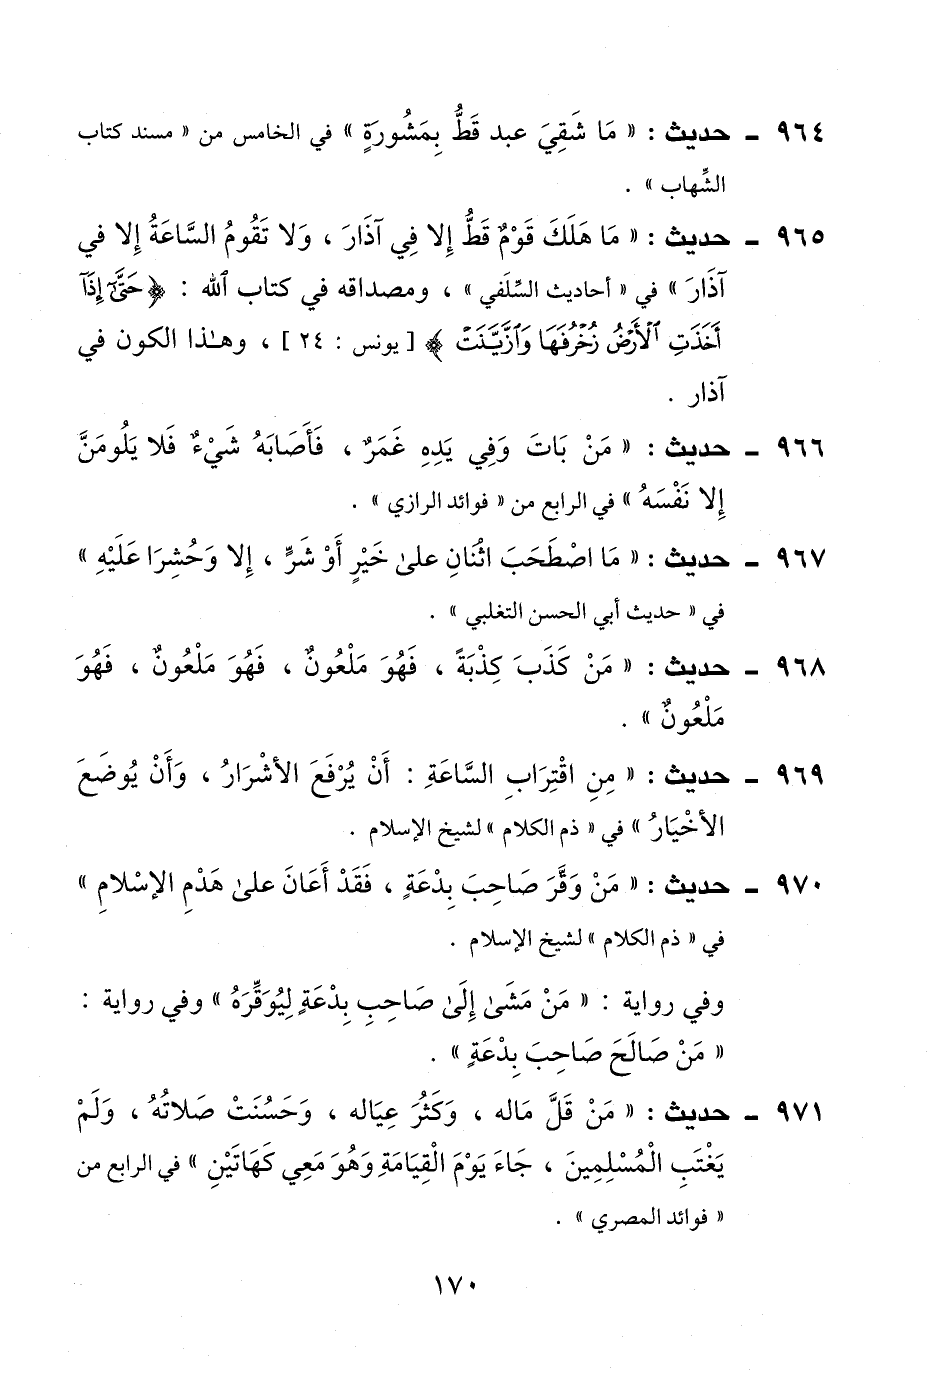 ٩٦٤ ـ حديث : « مَا شَقِيَ عبد قَطُّ بِمَشُورَةٍ » في الخامس من « مسند كتاب
الشِّهاب » .
٩٦٥ ـ حديث : « مَا هَلَكَ قَوْمٌ قَطُّ إِلا فِي آذَارَ ، وَلا تَقُومُ السَّاعَةُ إِلا في
آذَارَ » في « أحاديث السِّلَفي » ، ومصداقه في كتاب الله : ﴿ حَتَّىٰٓ إِذَآ
أَخَذَتِ ٱلْأَرْضُ زُخْرُفَهَا وَٱزَّيَّنَتْ ﴾ [ يونس : ٢٤ ] ، وهـٰذا الكون في
آذار .
٩٦٦ ـ حديث : « مَنْ بَاتَ وَفِي يَدِهِ غَمَرٌ ، فَأَصَابَهُ شَيْءٌ فَلا يَلُومَنَّ
إِلا نَفْسَهُ » في الرابع من « فوائد الرازي » .
٩٦٧ ـ حديث : « مَا اصْطَحَبَ اثْنَانِ علىٰ خَيْرٍ أَوْ شَرٍّ ، إِلا وَحُشِرَا عَلَيْهِ »
في « حديث أبي الحسن التغلبي » .
٩٦٨ ـ حديث : « مَنْ كَذَبَ كِذْبَةً ، فَهُوَ مَلْعُونٌ ، فَهُوَ مَلْعُونٌ ، فَهُوَ
مَلْعُونٌ » .
٩٦٩ ـ حديث : « مِنِ اقْتِرَابِ السَّاعَةِ : أَنْ يُرْفَعَ الأشْرَارُ ، وَأَنْ يُوضَعَ
الأخْيَارُ » في « ذم الكلام » لشيخ الإسلام .
٩٧٠ ـ حديث : « مَنْ وَقَّرَ صَاحِبَ بِدْعَةٍ ، فَقَدْ أَعَانَ علىٰ هَدْمِ الإسْلامِ »
في « ذم الكلام » لشيخ الإسلام .
وفي رواية : « مَنْ مَشَىٰ إِلَىٰ صَاحِبِ بِدْعَةٍ لِيُوَقِّرَهُ » وفي رواية :
« مَنْ صَالَحَ صَاحِبَ بِدْعَةٍ » .
٩٧١ ـ حديث : « مَنْ قَلَّ مَاله ، وَكَثُرَ عِيَاله ، وَحَسُنَتْ صَلاتُهُ ، وَلَمْ
يَغْتَبِ الْمُسْلِمِينَ ، جَاءَ يَوْمَ الْقِيَامَةِ وَهُوَ مَعِي كَهَاتَيْنِ » في الرابع من
« فوائد المصري » .
١٧٠